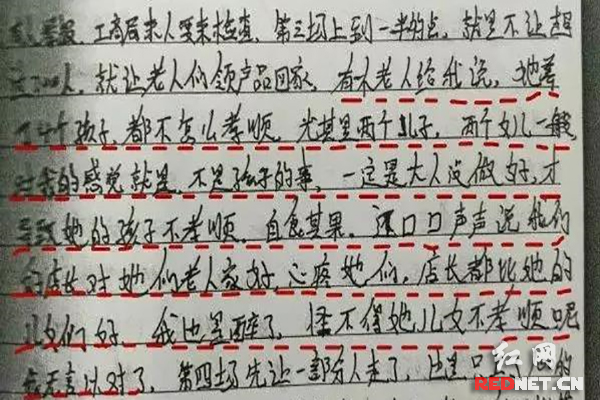 工商局来人要来检查，第三场上到一半的点，就是不让超
人，就让老人们领产品回家，有个老人给我说，她养
了4个孩子，都不怎么孝顺，尤其是两个儿子，两个女儿一般
的感觉就是，不是孩子的事，一定是大人没做好，才
导致她的孩子不孝顺，自食其果，还口口声声说我们
的店长对她们老人家好，心疼她们，店长都比她的
儿女们好，我也是醉了，怪不得她儿女不孝顺呢
我无言以对了，第四场先让一部分人走了，也是
红网
REDNET.CN